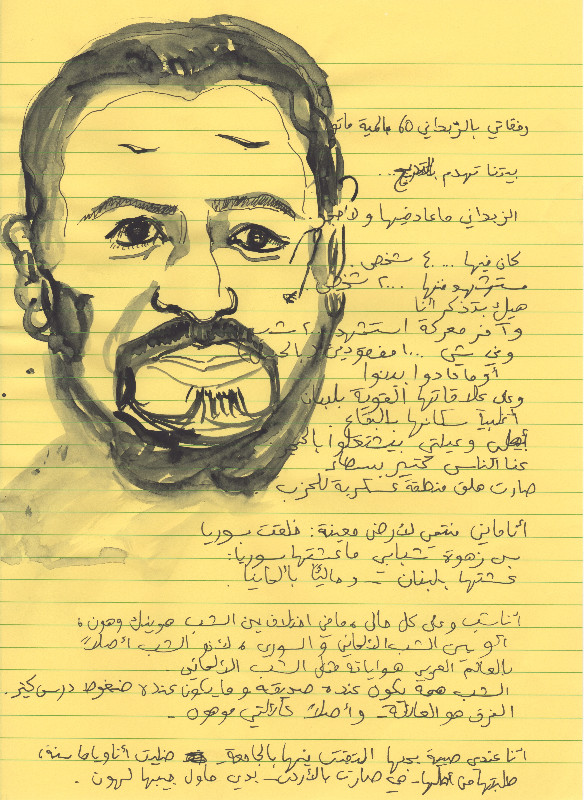 رفقاتي بالزبداني 60 بالمية ماتوا
بيتنا تهدم بالتدريج...
الزبداني ما عاد فيها ولا حجر
كان فيها ٤٠٠٠٠ شخص.
مستشهد منها ٢٠٠٠ شخص
هيك بتذكر أنا
وآخر معركة استشهد ٢٠٠ شب
وفي شي ١٠٠٠ مفقودين بالجبل
أو ما عادوا بينوا
وعلى علاقاتها القوية بلبنان
أغلبية سكانها بالبقاع.
أهلي وعيلتي بيشتغلوا
عنا الناس كتير بسطاء
صارت هلق منطقة عسكرية للحزب
أنا ماني منتمي لأرض معينة: خلقت سوريا
بس زهوة شبابي ما عشتها سوريا:
عشتها بلبنان – وحالياً بألمانيا.
أنا شب وعلى كل حال، ما في اختلاف بين الشب هونيك وهون،
أو بين الشب الألماني والسوري، لأنو الشب أصلاً
بالعالم العربي هواياته مثل الشب الألماني.
الشب همه يكون عنده صديقة وما يكون عنده ضغوط درس كتير.
الفرق هو العائلة. وأصلاً عائلتي مو هون.
أنا عندي صبية بحبها التقيت فيها بالجامعة ضليت أنا وياها سنة،
طلبتها من أهلها. هي صارت بالأردن. بدي حاول جيبها لهون.